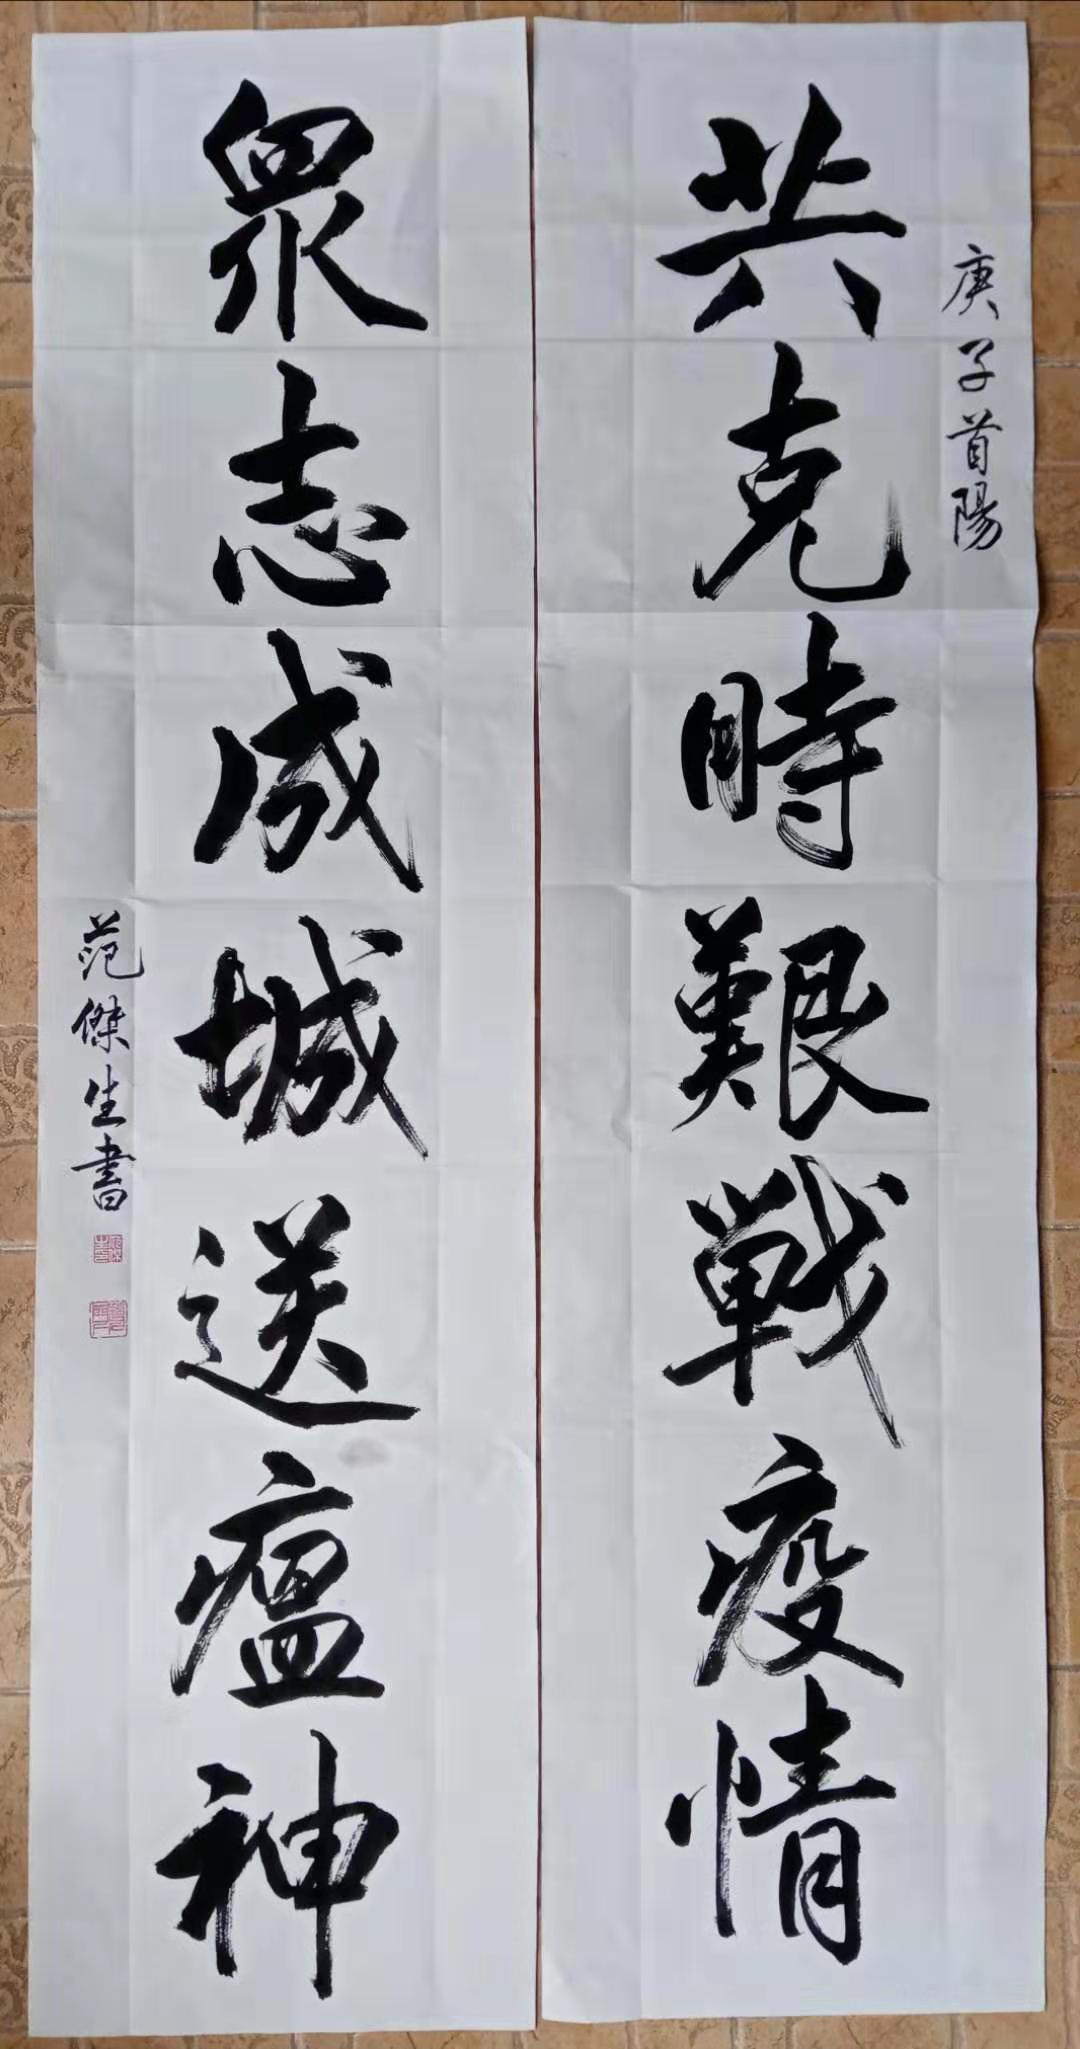 庚子首陽
共克時艱戰疫情
眾志成城送瘟神
范傑生書